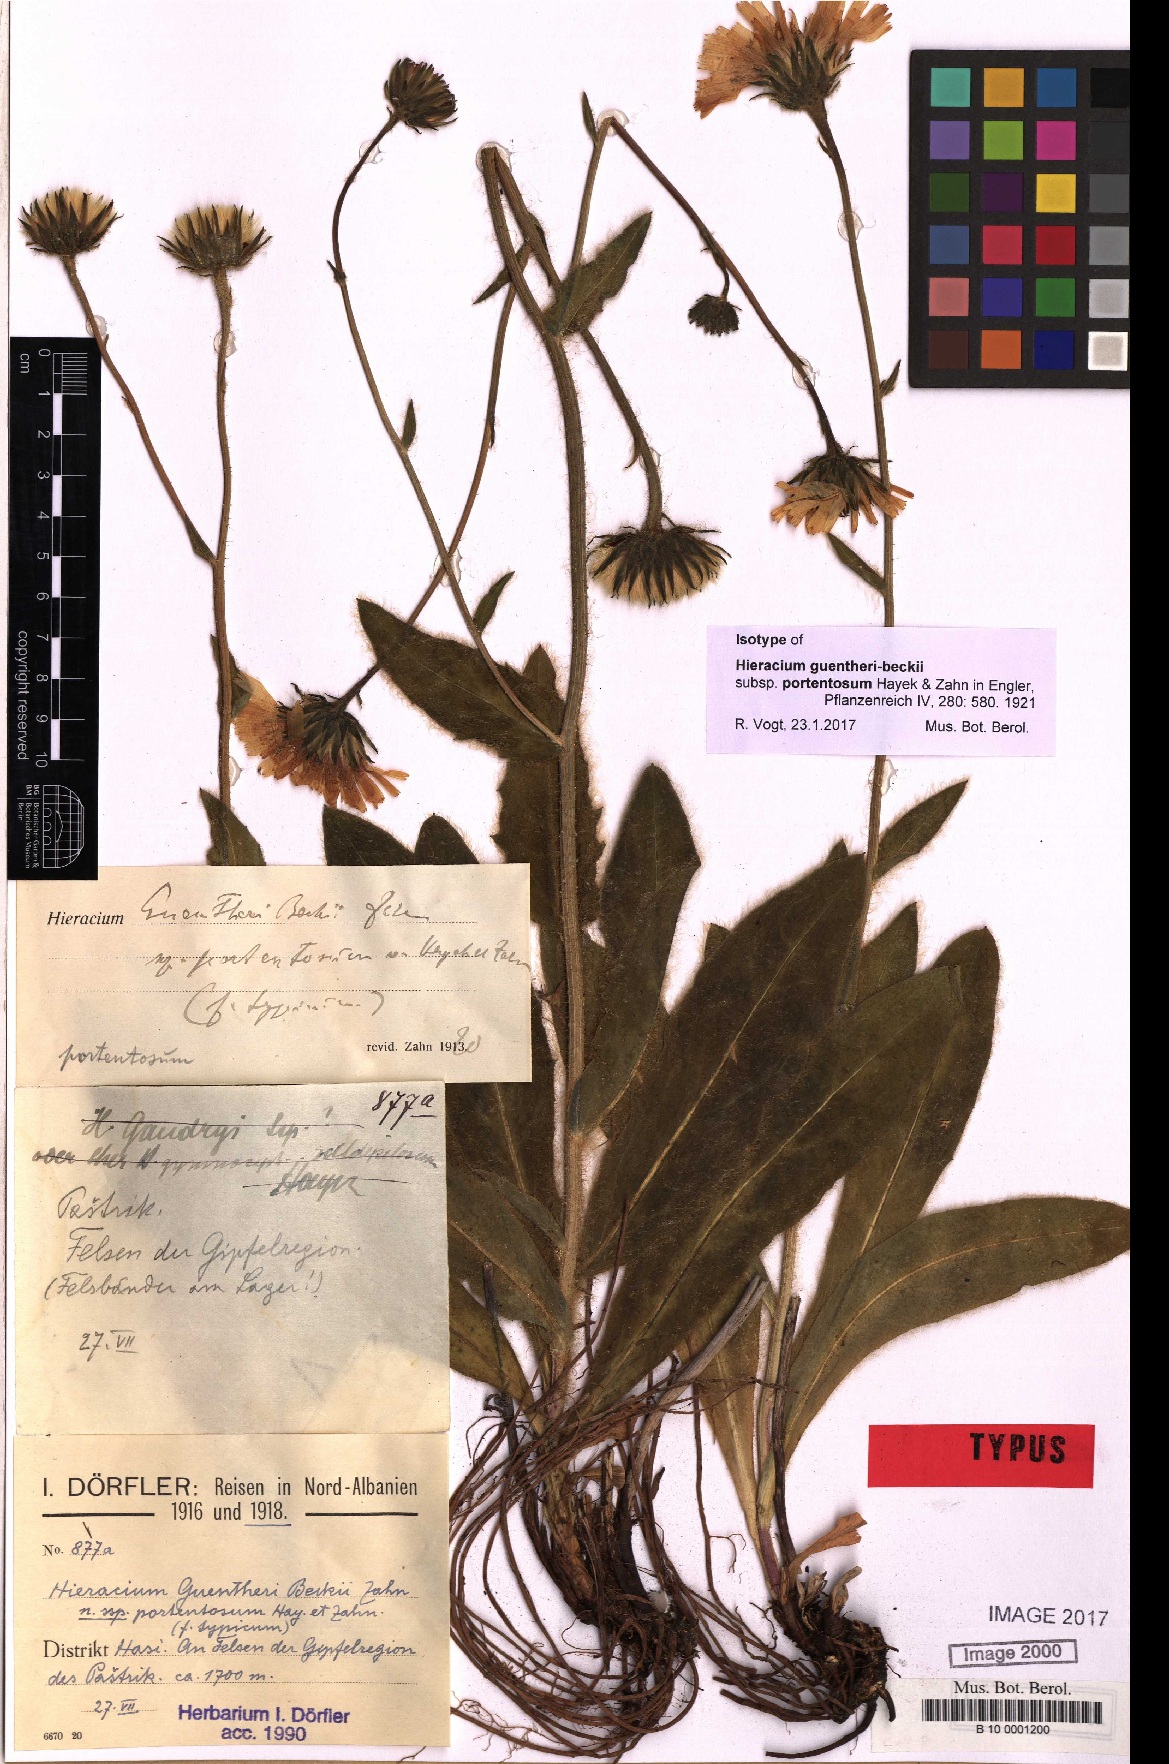 0
cm
1
2
3
4
5
6
7
8
9
10
copyright reserved
Isotype of
Hieracium guentheri-beckii
subsp. portentosum Hayek & Zahn in Engler,
Pflanzenreich IV, 280: 580. 1921
R. Vogt, 23.1.2017 Mus. Bot. Berol.
Hieracium Guentheri Beckii Zahn
portentosum Zahn
portentosum
revid. Zahn 1913
877a
H. Gaudryi
oder eher
Hayek
Paštrik.
Felsen der Gipfelregion.
(Felsbänder am Lager!)
27. VII
I. DÖRFLER: Reisen in Nord-Albanien
1916 und 1918.
No. 877a
Hieracium Guentheri Beckii Zahn
n. ssp. portentosum Hay. et Zahn.
(f. typicum)
Distrikt Hasi: An Felsen der Gipfelregion
des Paštrik. ca. 1700 m.
27. VII.
Herbarium I. Dörfler
acc. 1990
6670 20
TYPUS
IMAGE 2017
Image 2000
Mus. Bot. Berol.
B 10 0001200